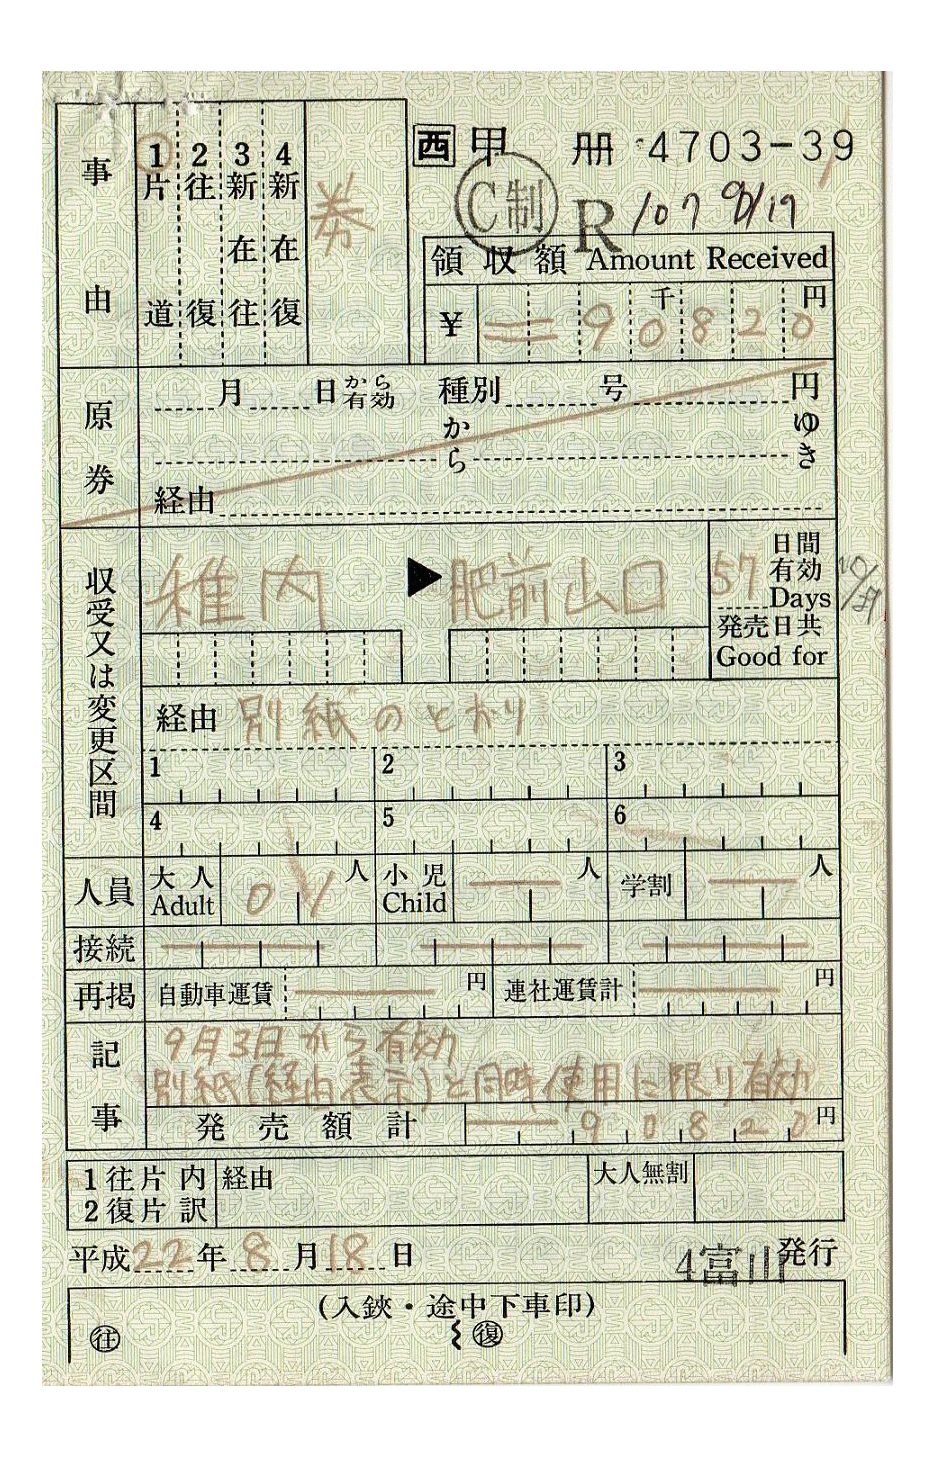 事由
1片道
2往復
3新在往
4新在復
券
西 甲 冊 4703-39
C制 R 107
領収額 Amount Received
¥ 千 円
90820
原券
月 日 から有効 種別 号 円
から ゆき
経由
収受又は変更区間
稚内 ▶ 肥前山口
57 日間有効 Days
発売日共
Good for
経由 別紙のとおり
1 2 3
4 5 6
人員 大人 Adult 01 人 小児 Child 人 学割 人
接続
再掲 自動車運賃 円 連社運賃計 円
記事
9月3日から有効
別紙(経由表示)と同時使用に限り有効
発売額計 90820 円
1往片内 経由 大人無割
2復片訳
平成22年8月18日 4富山発行
(入鋏・途中下車印)
往 復